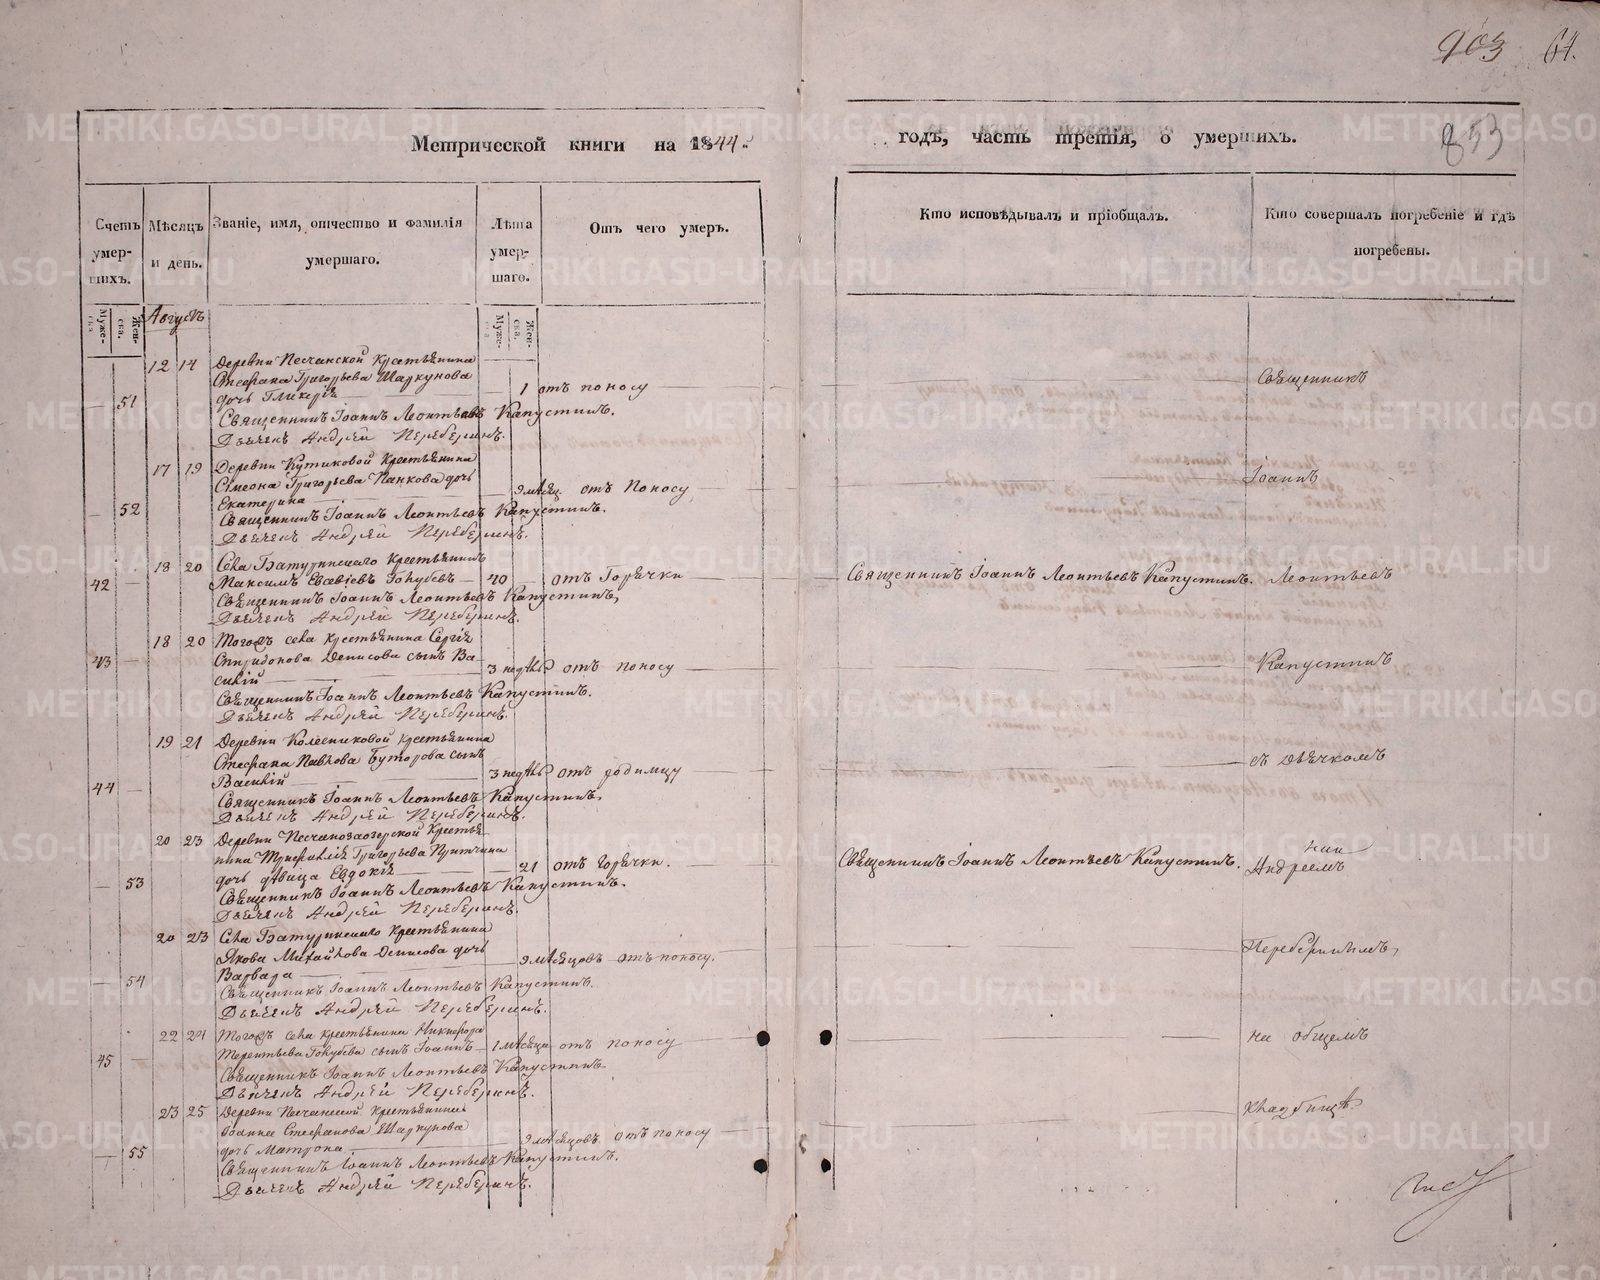 903 64.
853
Метрической книги на 1844.
годъ, часть третія, о умершихъ.
Счетъ умерших.
Мѣсяцъ и день.
Званіе, имя, отчество и фамилія умершаго.
Лѣта умершаго.
Отъ чего умеръ.
Кто исповѣдывалъ и пріобщалъ.
Кто совершалъ погребеніе и гдѣ погребены.
Муже- ска
Жен- ска.
Муже- ска
Жен- ска.
Августъ
12 14 Деревни Песчанской Крестьянина
Стефана Григорьева Шаркунова
51 дочь Гликерія 1 отъ поносу
Священникъ Іоаннъ Леонтьевъ Капустинъ.
Дьячекъ Андрей Переберинъ.
17 19 Деревни Кутиковой Крестьянина
Сімеона Григорьева Панкова дочь
52 Екатерина 9 мѣсяц. отъ Поносу
Священникъ Іоаннъ Леонтьевъ Капустинъ.
Дьячекъ Андрей Переберинъ.
18 20 Села Батуринскаго Крестьянинъ
42 Максимъ Евсевіевъ Голубевъ 40 отъ Горячки Священникъ Іоаннъ Леонтьевъ Капустинъ.
Священникъ Іоаннъ Леонтьевъ Капустинъ,
Дьячекъ Андрей Переберинъ.
18 20 Тогожъ села крестьянина Сергія
43 Спиридонова Денисова сынъ Ва-
силій 3 недѣль отъ поносу
Священникъ Іоаннъ Леонтьевъ Капустинъ.
Дьячекъ Андрей Переберинъ.
19 21 Деревни Колесниковой крестьянина
Стефана Павлова Буторова сынъ
44 Василій 3 недѣль отъ родимцу
Священникъ Іоаннъ Леонтьевъ Капустинъ,
Дьячекъ Андрей Переберинъ.
20 23 Деревни Песчаноозерской Крестья-
нина Трифиллія Григорьева Притчина
53 дочь дѣвица Евдокія 21 отъ Горячки. Священникъ Іоаннъ Леонтьевъ Капустинъ.
Священникъ Іоаннъ Леонтьевъ Капустинъ.
Дьячекъ Андрей Переберинъ.
20 23 Села Батуринскаго Крестьянина
Якова Михайлова Денисова дочь
54 Варвара 9 мѣсяцовъ отъ поносу.
Священникъ Іоаннъ Леонтьевъ Капустинъ.
Дьячекъ Андрей Переберинъ.
22 24 Тогожъ села крестьянина Никифора
45 Терентьева Голубева сынъ Іоаннъ 1 мѣсяца отъ поносу
Священникъ Іоаннъ Леонтьевъ Капустинъ.
Дьячекъ Андрей Переберинъ.
23 25 Деревни Песчанской крестьянина
Іоанна Стефанова Шаркунова
55 дочь Матрона 9 мѣсяцовъ отъ поносу
Священникъ Іоаннъ Леонтьевъ Капустинъ.
Дьячекъ Андрей Переберинъ.
Священникъ
Іоаннъ
Леонтьевъ
Капустинъ
съ дьячкомъ
Андреемъ
Переберинымъ,
на общемъ
кладбищѣ.
METRIKI.GASO-URAL.RU